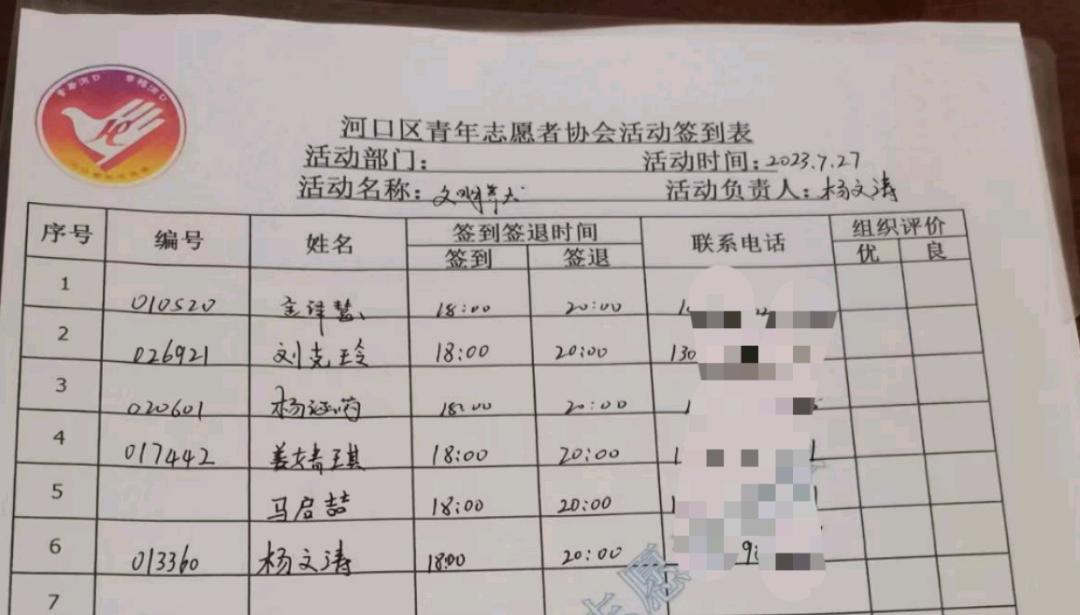 河口区青年志愿者协会活动签到表
活动部门： 活动时间：2023.7.27
活动名称： 活动负责人：杨文涛
序号 编号 姓名 签到签退时间 联系电话 组织评价
签到 签退 优 良
1 010520 18:00 20:00
2 026921 刘克玲 18:00 20:00 130
3 020601 杨 18:00 20:00
4 017442 姜 琪 18:00 20:00
5 马启喆 18:00 20:00
6 013360 杨文涛 18:00 20:00
7
志愿